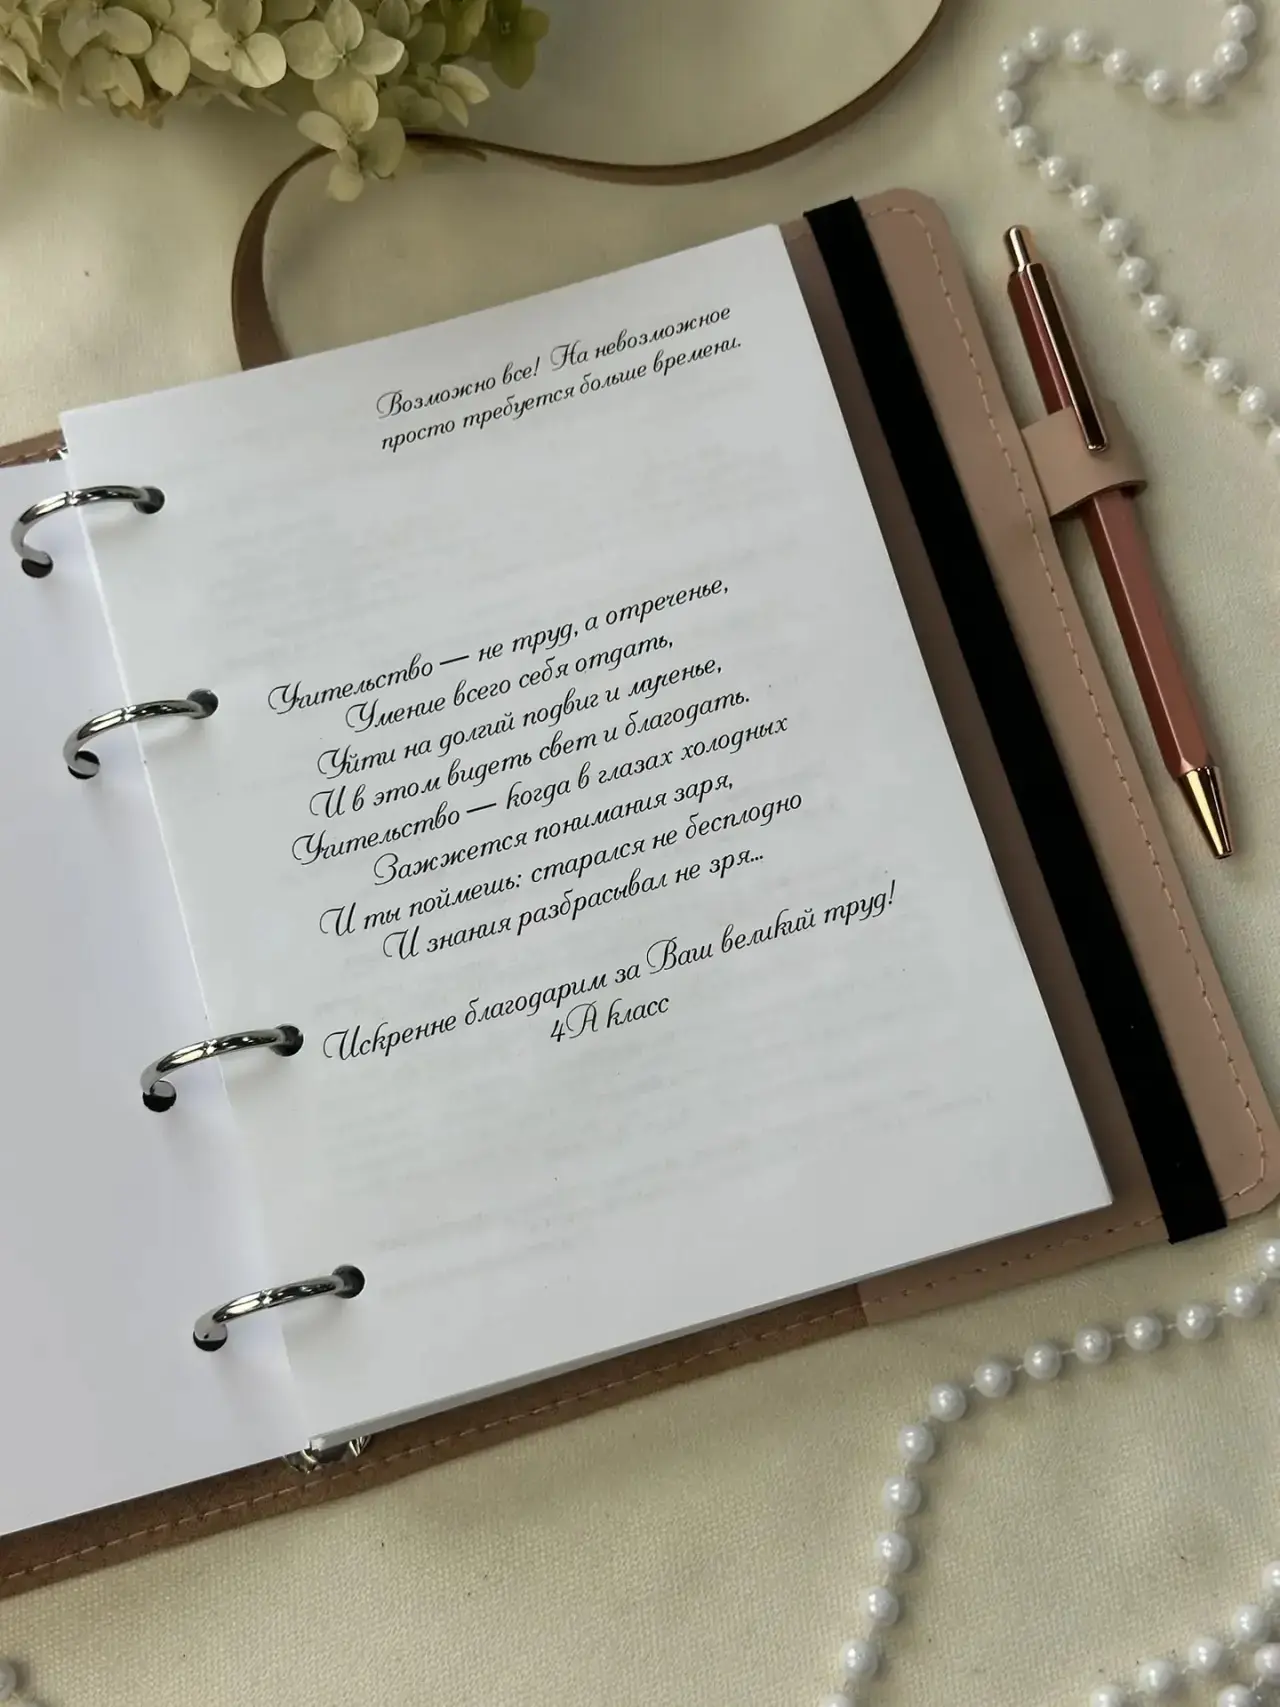 Возможно все! На невозможное
просто требуется больше времени.
Учительство — не труд, а отреченье,
Умение всего себя отдать,
Уйти на долгий подвиг и мученье,
И в этом видеть свет и благодать.
Учительство — когда в глазах холодных
Зажжется понимания заря,
И ты поймешь: старался не бесплодно
И знания разбрасывал не зря...
Искренне благодарим за Ваш великий труд!
4А класс